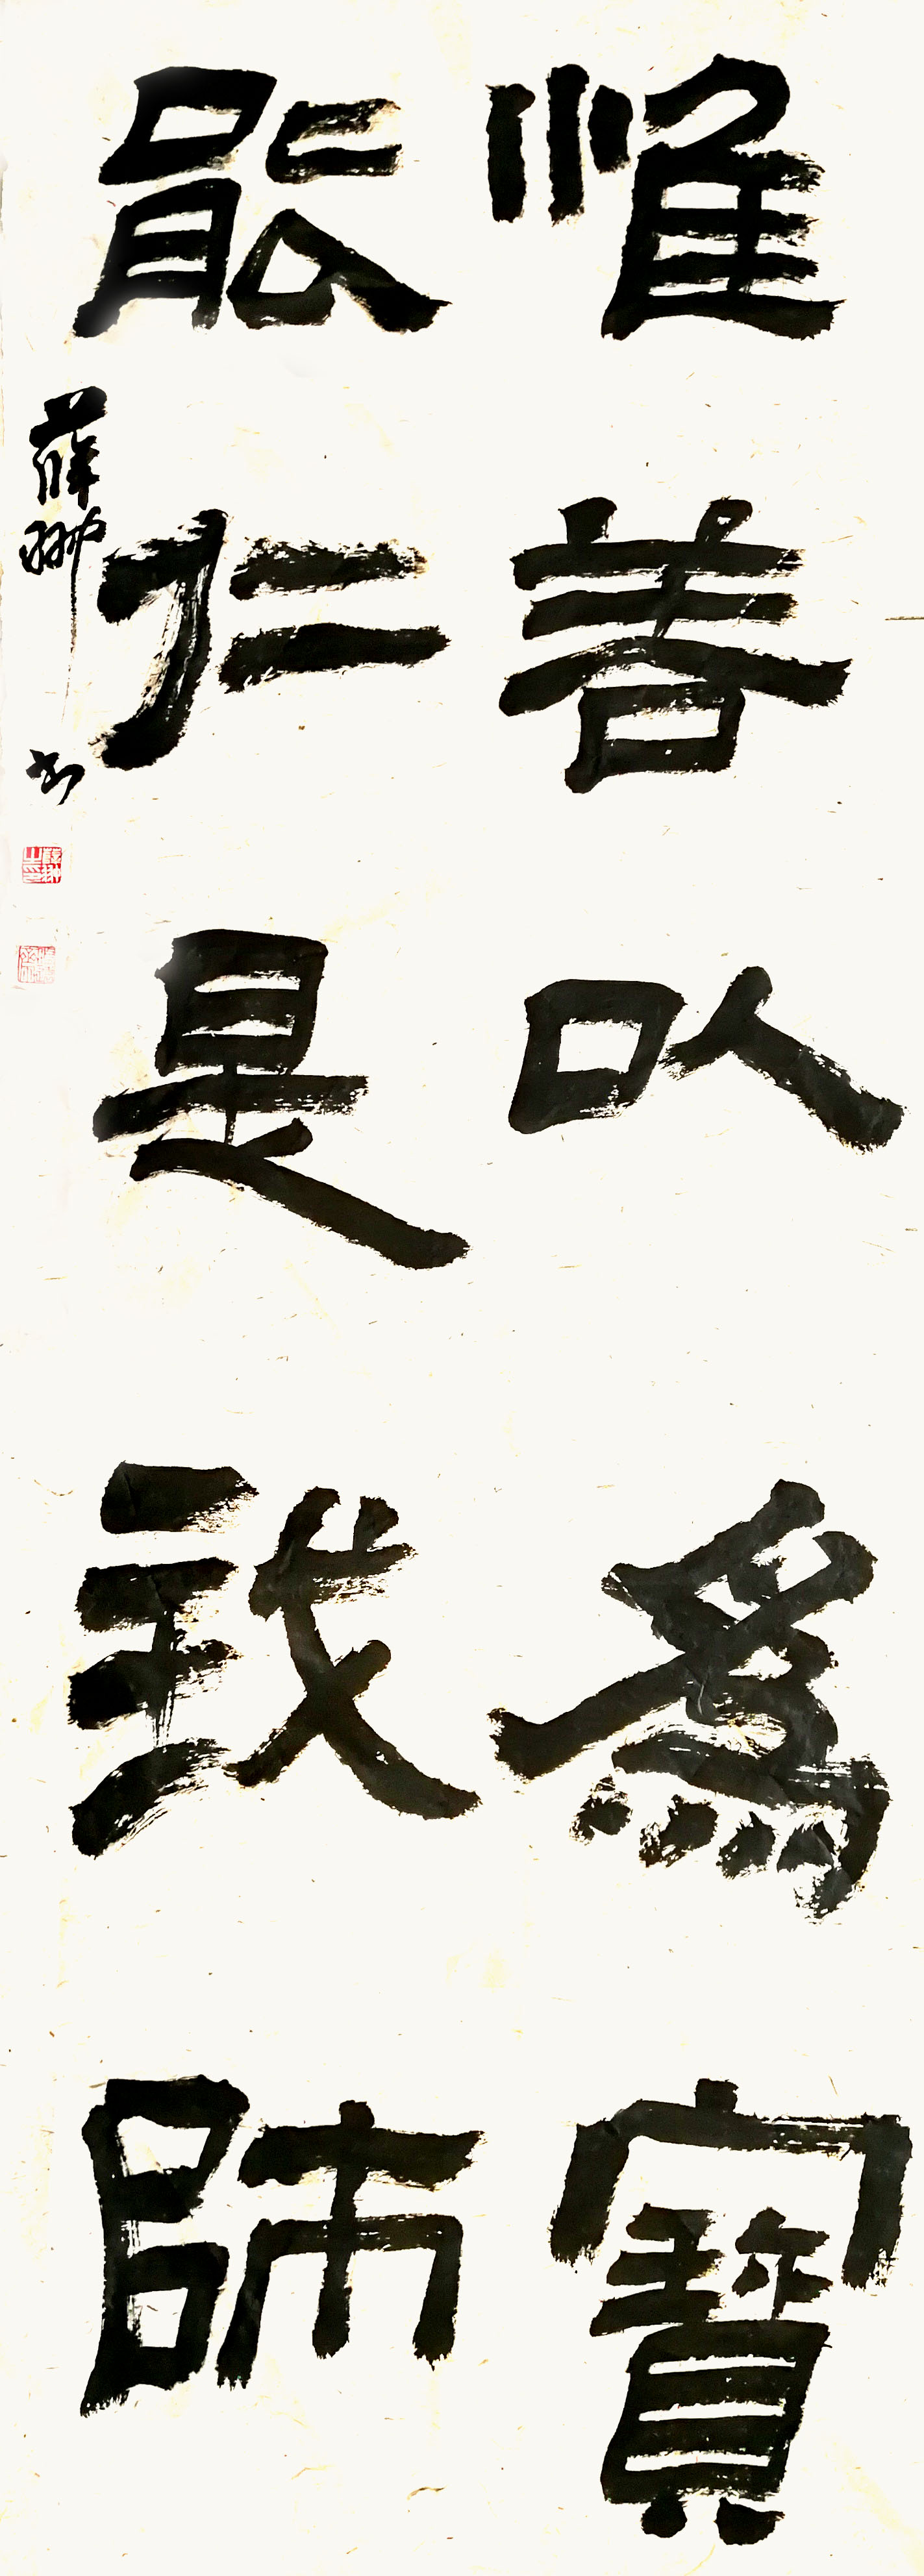 惟善以為寶
能仁是我師
薛翀書